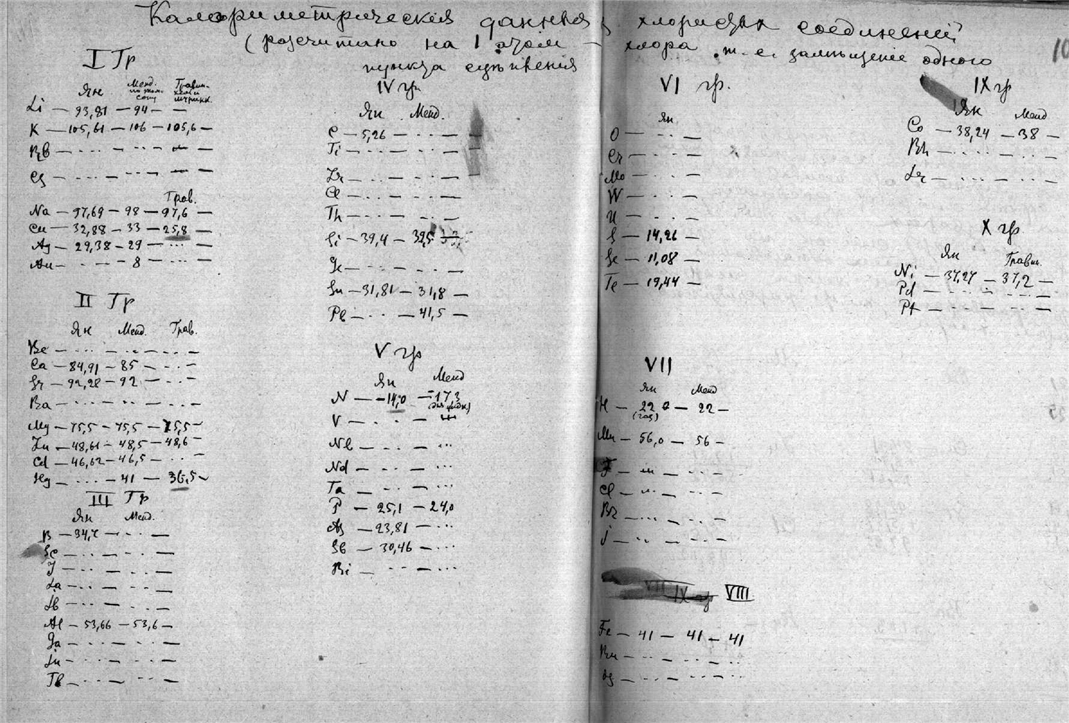 Калориметрическія данныя хлористых соединений
(разсчитано на 1 атом хлора т. е. замѣщение одного
пункта сцѣпления
I Гр
Ян Менд. Трав.
Li — 93,81 — 94 — —
K — 105,61 — 106 — 105,6 —
Rb — ... — ... — — —
Cs — ... — ... — — —
Трав.
Na — 97,69 — 98 — 97,6 —
Cu — 32,88 — 33 — 25,8 —
Ag — 29,38 — 29 — ... —
Au — — 8 — ... —
II Гр
Ян Менд. Трав.
Be — ... — ... — ... —
Ca — 84,91 — 85 — ... —
Sr — 92,28 — 92 — ... —
Ba — ... — ... — ... —
Mg — 75,5 — 75,5 — 75,5 —
Zn — 48,61 — 48,5 — 48,6 —
Cd — 46,62 — 46,5 — ... —
Hg — ... — 41 — 36,5 —
III Гр
Ян Менд.
B — 34,7 — ... —
Sc — ... — ... —
Y — ... — ... —
La — ... — ... —
Yb — ... — ... —
Al — 53,66 — 53,6 —
Ga — ... — ... —
In — ... — ... —
Tl — ... — ... —
IV гр.
Ян Менд.
C — 5,26 — ... —
Ti — ... — ... —
Zr — ... — ... —
Ce — ... — ... —
Th — ... — ... —
Si — 39,4 — 39,5
Ge — ... — ... —
Sn — 31,81 — 31,8 —
Pb — ... — 41,5 —
V гр
Ян Менд
N — -19,0 — -17,3
V — ... —
Nb — ... — ...
Nd — ... — ...
Ta — ... — ...
P — 25,1 — 24,0
As — 23,81 — ...
Sb — 30,46 — ...
Bi — ... — ... —
VI гр.
Ян
O — ... —
Cr — ... —
Mo — ... —
W — ... —
U — ... —
S — 14,26 —
Se — 11,08 —
Te — 19,44 —
VII
Ян Менд
H — 22 — 22 —
(газ)
Mn — 56,0 — 56 —
F — ... — ...
Cl — ... — ...
Br — ... — ...
J — ... — ...
VII IX гр VIII
Fe — 41 — 41 — 41
Ru — ... — ... — ...
Os — ... — ... — ...
10
IX гр
Ян Менд
Co — 38,24 — 38 —
Rh — ... — ... —
Ir — ... — ... —
X гр
Ян Трав.
Ni — 37,27 — 37,2 —
Pd — ... — ... —
Pt — ... — ... —